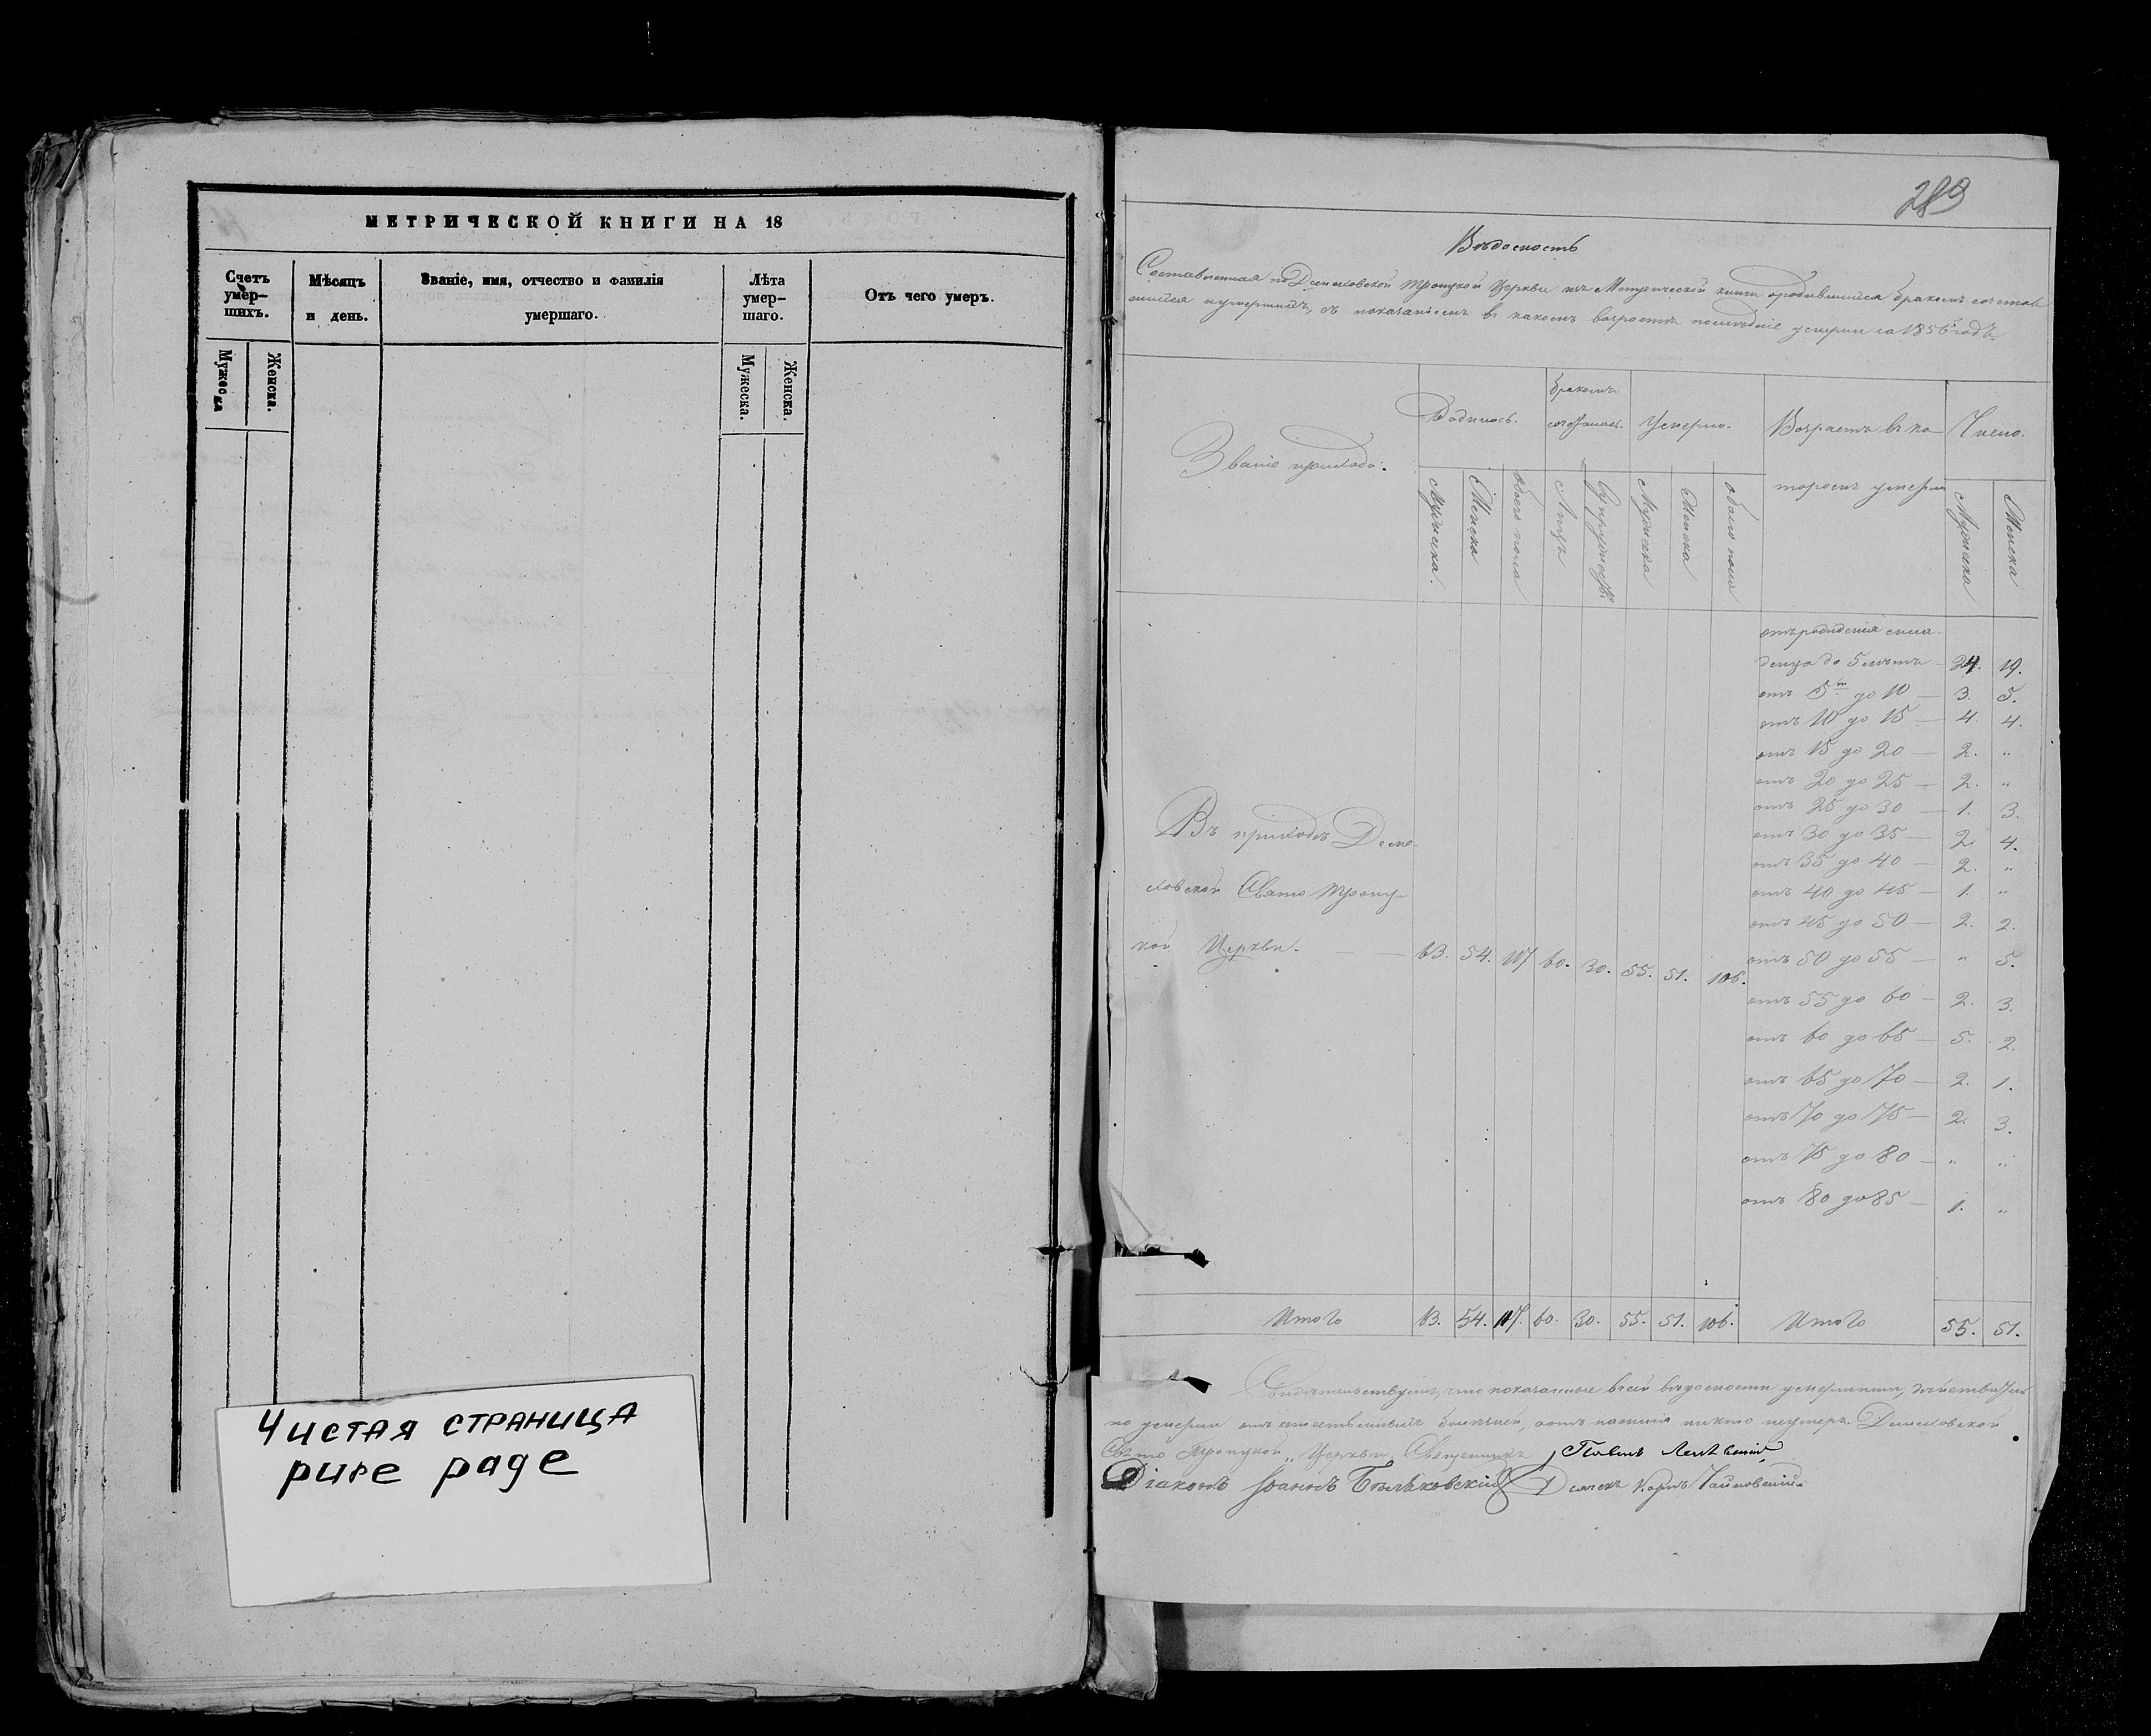 МЕТРИЧЕСКОЙ КНИГИ НА 18
Счетъ умер-шихъ.
Мѣсяцъ и день.
Званіе, имя, отчество и фамилія умершаго.
Лѣта умер-шаго.
Отъ чего умеръ.
Мужеска
Женска.
Мужеска.
Женска.
Чистая страница
pure page
289
Вѣдомость
Составленная по Троицкой Церкви изъ Метрической книги бракомъ
умершихъ, съ показаніемъ въ какомъ возрастѣ последніе умерли за 1856 годъ.
Званіе прихода.
Родилось.
бракомъ
Умерло.
Возрастъ въ ко
торомъ умерли
Число.
Мужеска.
Женска
обоего пола
Лицъ
Супружествъ.
Мужеска
Женска
обоего пола
Мужеска
Женска
отъ рожденія мла
денца до 5 лѣтъ — 24. 19.
отъ 5 до 10 — 3. 5.
отъ 10 до 15 — 4. 4.
отъ 15 до 20 — 2. „
отъ 20 до 25 — 2. „
отъ 25 до 30 — 1. 3.
отъ 30 до 35 — 2. 4.
отъ 35 до 40 — 2. „
отъ 40 до 45 — 1. „
отъ 45 до 50 — 2. 2.
отъ 50 до 55 — „ 5.
отъ 55 до 60 — 2. 3.
отъ 60 до 65 — 5. 2.
отъ 65 до 70 — 2. 1.
отъ 70 до 75 — 2. 3.
отъ 75 до 80 — „ „
отъ 80 до 85 — 1. „
Въ приходѣ
Свято Троиц-
кой Церкви. — 63. 54. 117 60. 30. 55. 51. 106.
Итого 63. 54. 117. 60. 30. 55. 51. 106. Итого 55. 51.
Свидѣтельствуемъ, что показанные въ сей вѣдомости умершими, дѣйствитель
но умерли отъ естественныхъ болѣзней, никто
Свято Троицкой Церкви Священникъ Павелъ
Діаконъ Іоаннъ Бѣльховскій Дьячекъ